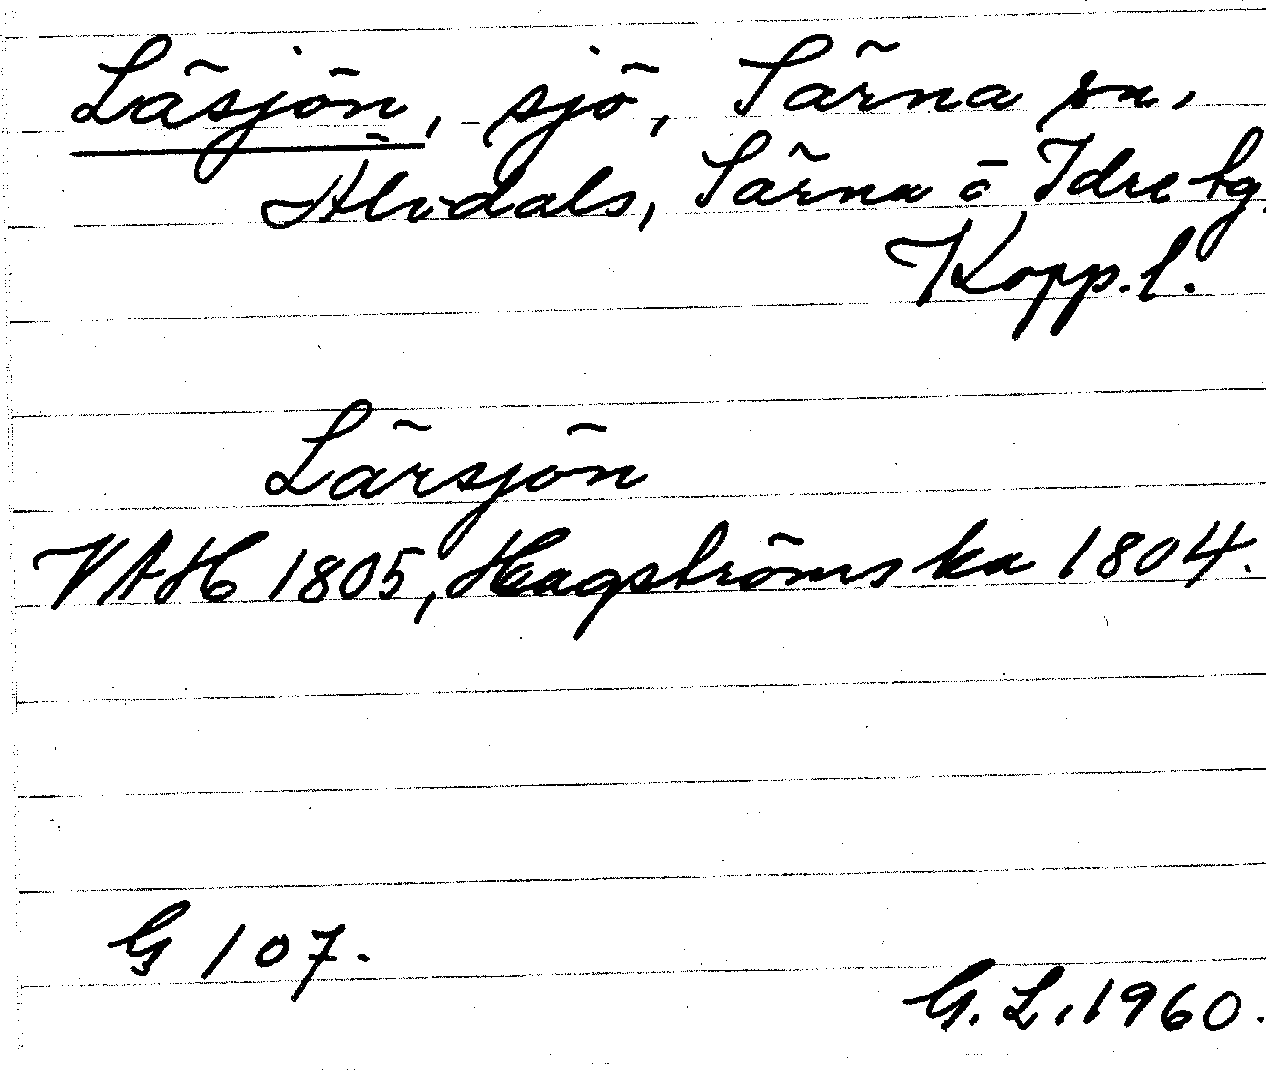 Läsjön, sjö, Särna sn,
Älvdals, Särna o Idre tg.
Kopp.l.
Lärsjön
VAH 1805, Hagströmska 1804.
G 107.
G.L.1960.